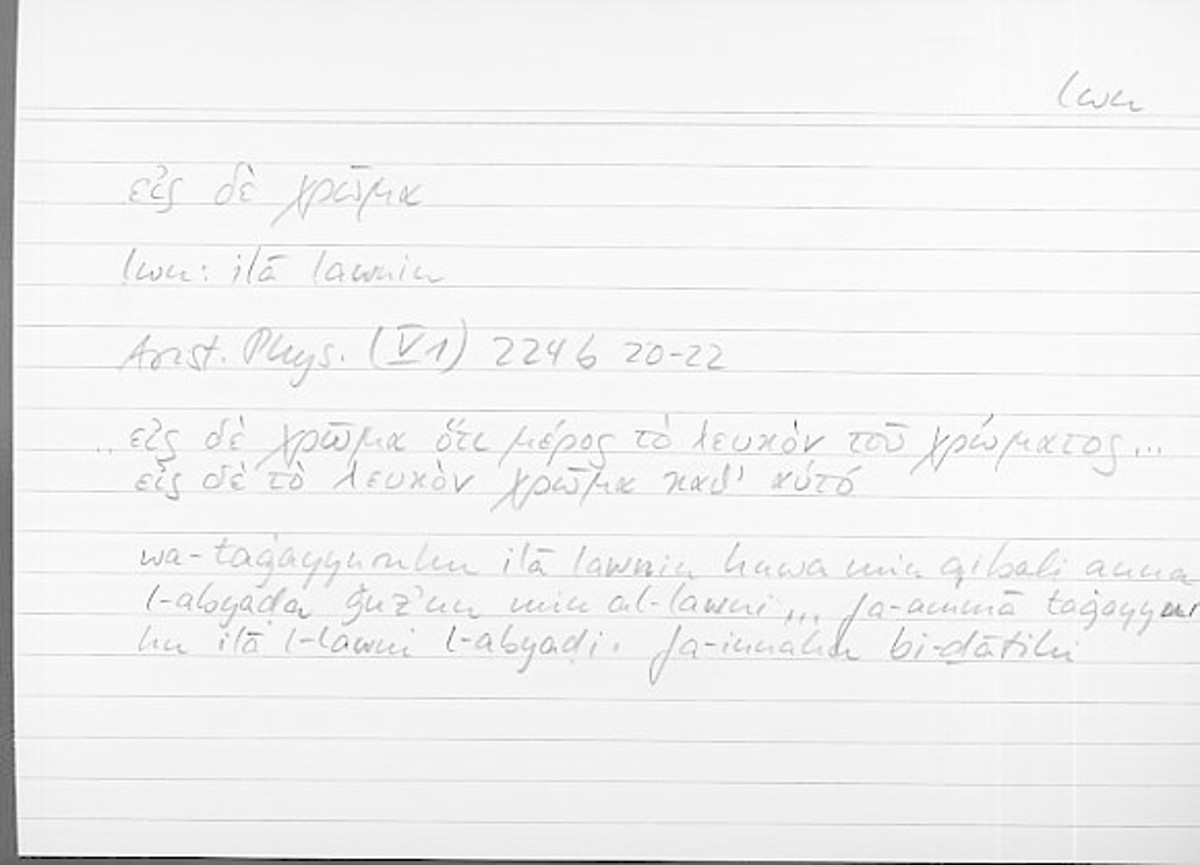 lwn
εἰς δὲ χρῶμα
lwn: ilā lawnin
Arist. Phys. (V 1) 224 b 20-22
.. εἰς δὲ χρῶμα ὅτι μέρος τὸ λευκὸν τοῦ χρώματος...
εἰς δὲ τὸ λευκὸν χρῶμα καθ' αὑτό
wa-taġayyuruhu ilā lawnin huwa min qibali anna
l-abyaḍa ǧuz'un min al-lawni... fa-ammā taġayyuru
hu ilā l-lawni l-abyaḍi. fa-innahu bi-ḏātihi